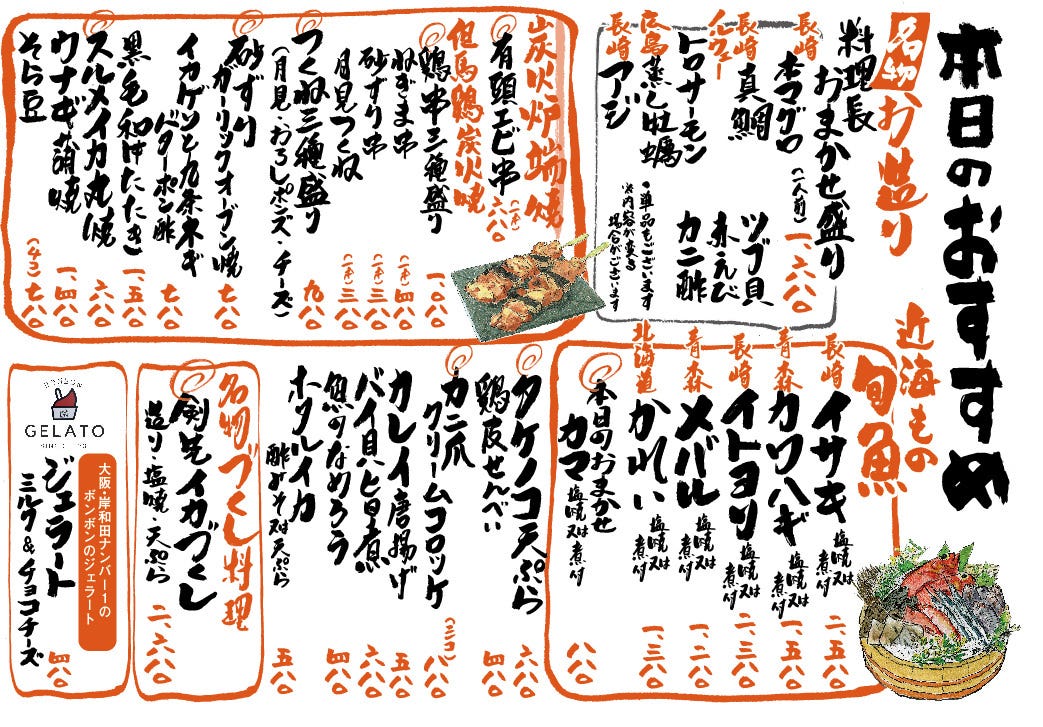 本日のおすすめ
名物お造り
料理長
おまかせ盛り
(一人前) 一、六八〇
長崎 本マグロ
長崎 真鯛
ノルウェー トロサーモン
広島 蒸し牡蠣
長崎 アジ
ツブ貝
赤えび
カニ酢
・単品もございます
※内容が変る
場合がございます
炭火炉端焼
有頭エビ串 (一本) 六八〇
但馬鶏炭火焼
鶏串三種盛り 一、〇八〇
ねぎま串 (一本) 四八〇
砂ずり串 (一本) 三八〇
月見つくね (一本) 三八〇
つくね三種盛り 九八〇
(月見・おろしポンズ・チーズ)
砂ずり
ガーリックオーブン焼 七八〇
イカゲソと九条ネギ
バターポン酢 七八〇
黒毛和牛たたき 一、五八〇
スルメイカ丸焼 六八〇
ウナギ蒲焼 一、四八〇
そら豆 (4コ) 七八〇
近海もの
旬魚
長崎 イサキ 塩焼又は煮付 二、五八〇
青森 カワハギ 塩焼又は煮付 一、五八〇
長崎 イトヨリ 塩焼又は煮付 一、二八〇
青森 メバル 塩焼又は煮付 一、二八〇
北海道 かれい 塩焼又は煮付 一、三八〇
本日のおまかせ
カマ 塩焼又は煮付 八八〇
タケノコ天ぷら 六八〇
鶏皮せんべい 四八〇
カニ爪
クリームコロッケ (二コ) 八八〇
カレイ唐揚げ 五八〇
バイ貝八と旨煮 六八〇
魚のなめろう 四八〇
ホタルイカ
酢みそ又は天ぷら 五八〇
名物づくし料理
剣先イカづくし
造り・塩焼・天ぷら 二、六八〇
GELATO
大阪・岸和田ナンバー1の
ボンボンのジェラート
ジェラート
ミルク&チョコチーズ 四八〇